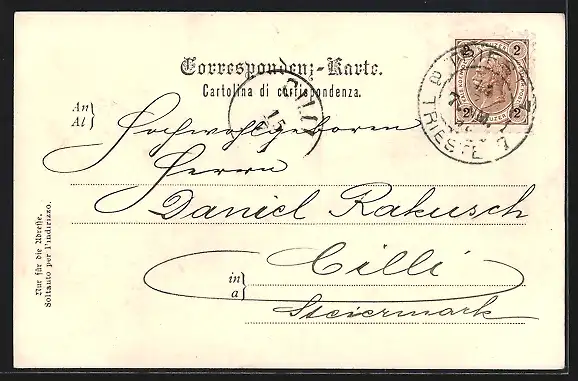 Correspondenz-Karte.
Cartolina di corrispondenza.
An
Al
Hochwohlgeboren
Herrn
Daniel Rakusch
in
a
Cilli
Steiermark
Nur für die Adresse.
Soltanto per l'indirizzo.
2 2
2 2
TRIESTE
CILLI
15